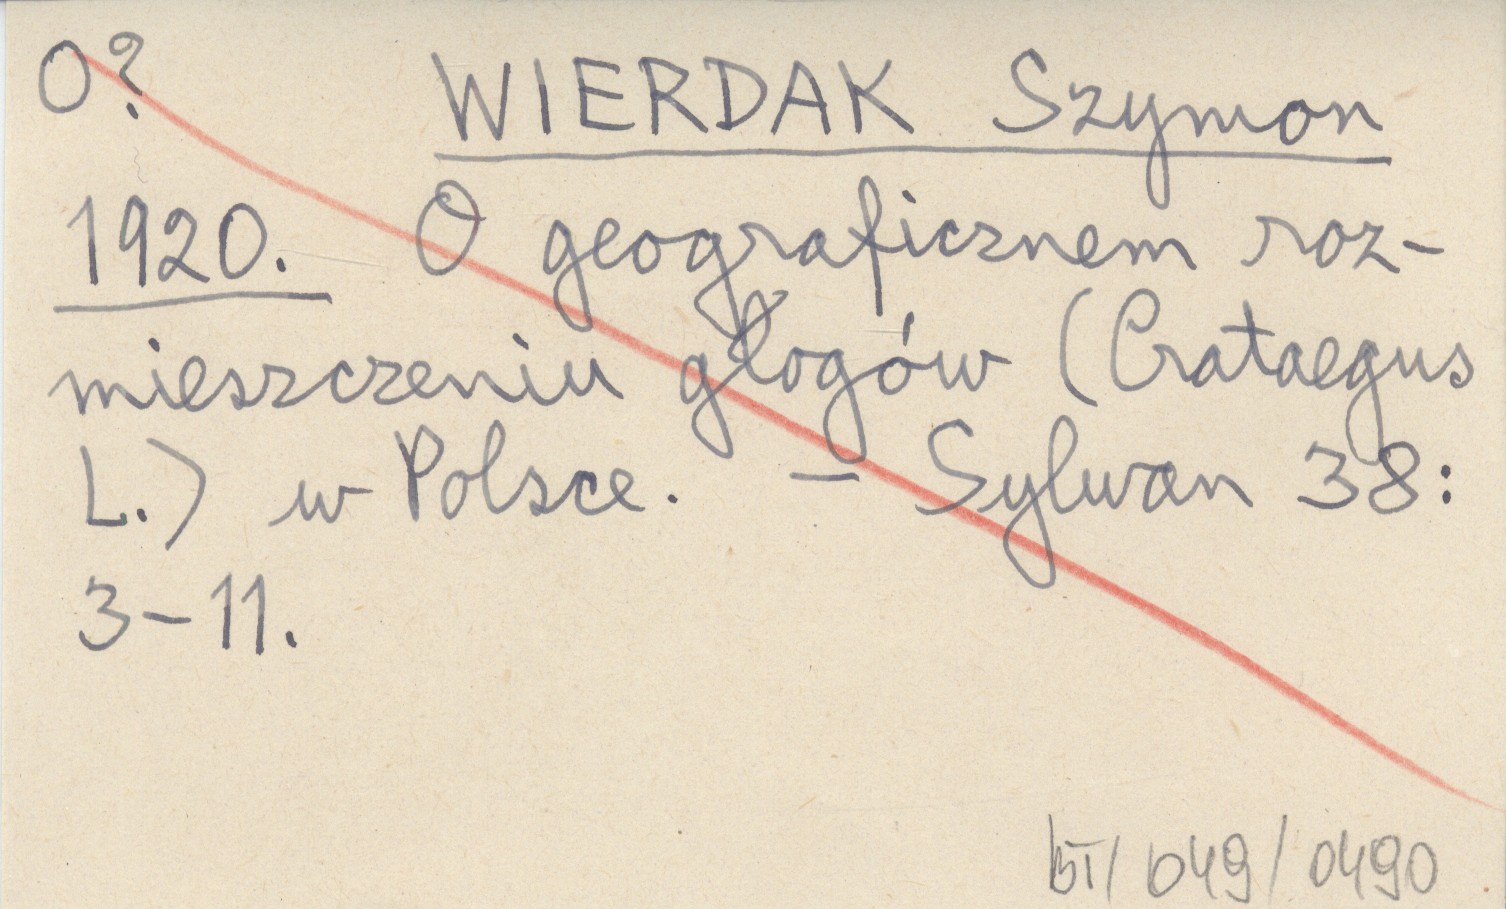 O? WIERDAK Szymon
1920. O geograficznem roz-
mieszczeniu głogów (Crataegus
L.) w Polsce. – Sylwan 38:
3–11.
BT/049/0490